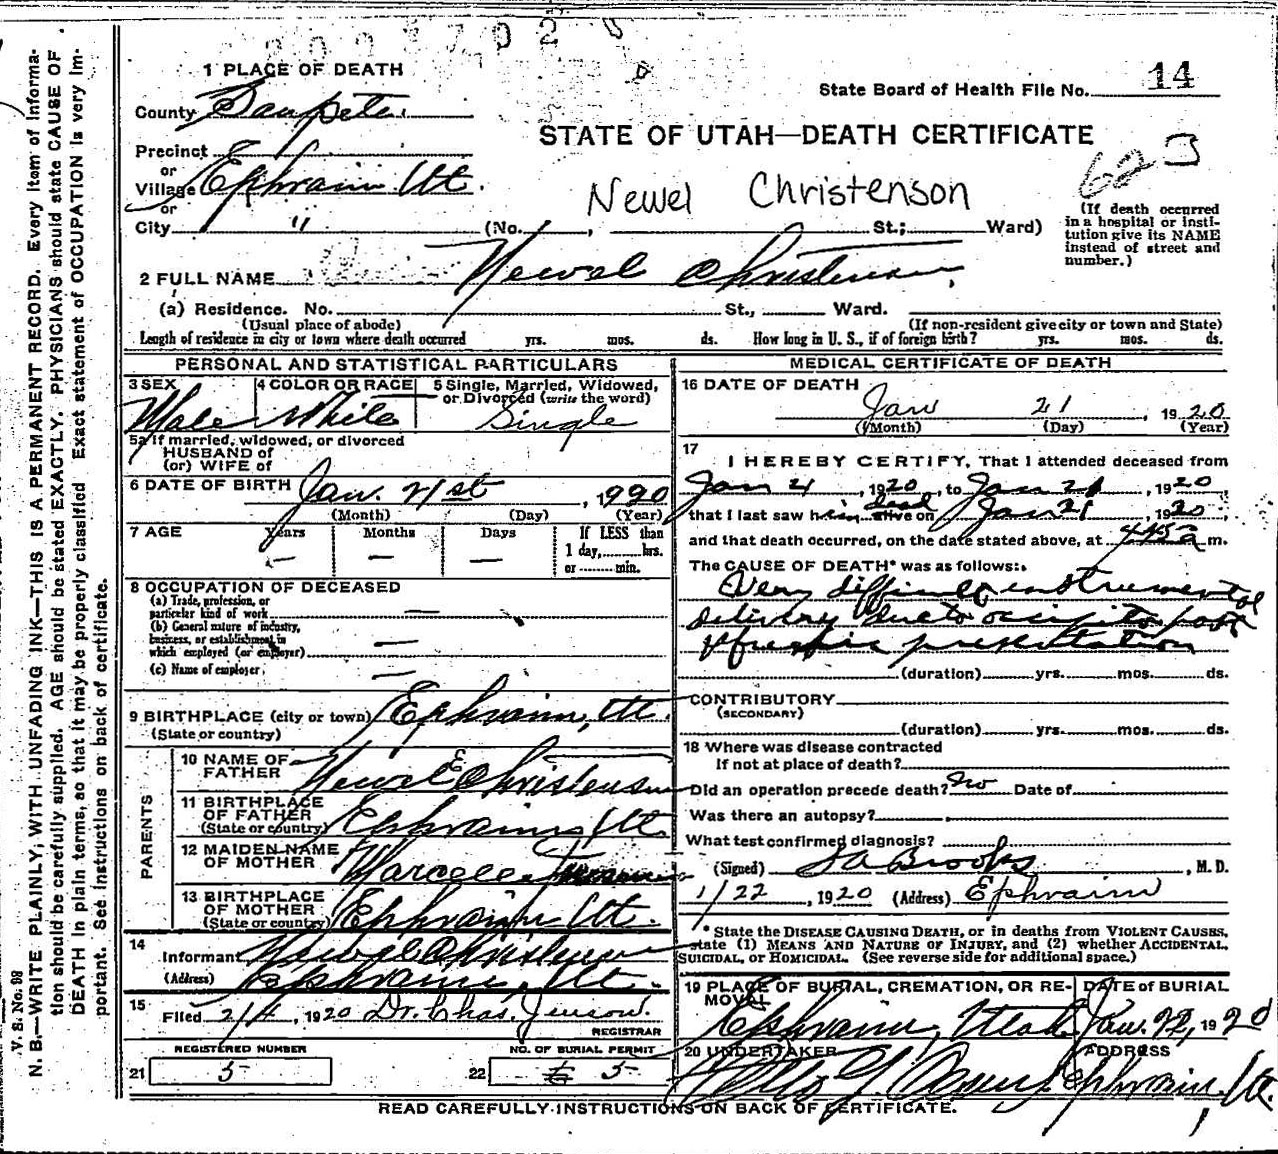 1 PLACE OF DEATH
State Board of Health File No. 14
County Sanpete.
STATE OF UTAH—DEATH CERTIFICATE
623
Precinct
or
Village Ephraim Ut.
or
Newel Christenson
City " (No. , St.; Ward)
(If death occurred
in a hospital or insti-
tution give its NAME
instead of street and
number.)
2 FULL NAME Newel Christensen,
(a) Residence. No. St., Ward.
(Usual place of abode) (If non-resident give city or town and State)
Length of residence in city or town where death occurred yrs. mos. ds. How long in U. S., if of foreign birth? yrs. mos. ds.
PERSONAL AND STATISTICAL PARTICULARS
3 SEX 4 COLOR OR RACE 5 Single, Married, Widowed,
or Divorced (write the word)
Male White Single
5a If married, widowed, or divorced
HUSBAND of
(or) WIFE of
6 DATE OF BIRTH Jan. 21st, 1920
(Month) (Day) (Year)
7 AGE Years Months Days If LESS than
1 day, hrs.
— — — or min.
8 OCCUPATION OF DECEASED
(a) Trade, profession, or
particular kind of work —
(b) General nature of industry,
business, or establishment in
which employed (or employer) —
(c) Name of employer —
9 BIRTHPLACE (city or town) Ephraim, Ut.
(State or country)
PARENTS
10 NAME OF
FATHER Newel E Christensen
11 BIRTHPLACE
OF FATHER
(State or country) Ephraim Ut.
12 MAIDEN NAME
OF MOTHER Marcelle
13 BIRTHPLACE
OF MOTHER
(State or country) Ephraim Ut.
14
Informant Newel Christensen
(Address) Ephraim, Ut.
15 Filed 2/4, 1920 Dr. Chas. Jenson.
REGISTRAR
REGISTERED NUMBER NO. OF BURIAL PERMIT
21 5 22 5
MEDICAL CERTIFICATE OF DEATH
16 DATE OF DEATH
Jan 21, 1920
(Month) (Day) (Year)
17
I HEREBY CERTIFY, That I attended deceased from
Jan 21, 1920, to Jan 21, 1920,
that I last saw him dead alive on Jan 21, 1920,
and that death occurred, on the date stated above, at 445a m.
The CAUSE OF DEATH* was as follows:
Very difficult instrumental
delivery due to occipito post
presentation
(duration) yrs. mos. ds.
CONTRIBUTORY
(SECONDARY)
(duration) yrs. mos. ds.
18 Where was disease contracted
If not at place of death?
Did an operation precede death? No Date of
Was there an autopsy?
What test confirmed diagnosis?
(Signed) Brooks, M. D.
1/22, 1920 (Address) Ephraim
* State the DISEASE CAUSING DEATH, or in deaths from VIOLENT CAUSES,
state (1) MEANS AND NATURE OF INJURY, and (2) whether ACCIDENTAL,
SUICIDAL, or HOMICIDAL. (See reverse side for additional space.)
19 PLACE OF BURIAL, CREMATION, OR RE-
MOVAL DATE of BURIAL
Ephraim, Utah Jan. 22, 1920
20 UNDERTAKER ADDRESS
Ephraim, Ut.
READ CAREFULLY INSTRUCTIONS ON BACK OF CERTIFICATE.
V. S. No. 98
N. B.—WRITE PLAINLY, WITH UNFADING INK—THIS IS A PERMANENT RECORD. Every item of informa-
tion should be carefully supplied. AGE should be stated EXACTLY. PHYSICIANS should state CAUSE OF
DEATH in plain terms, so that it may be properly classified. Exact statement of OCCUPATION is very im-
portant. See instructions on back of certificate.